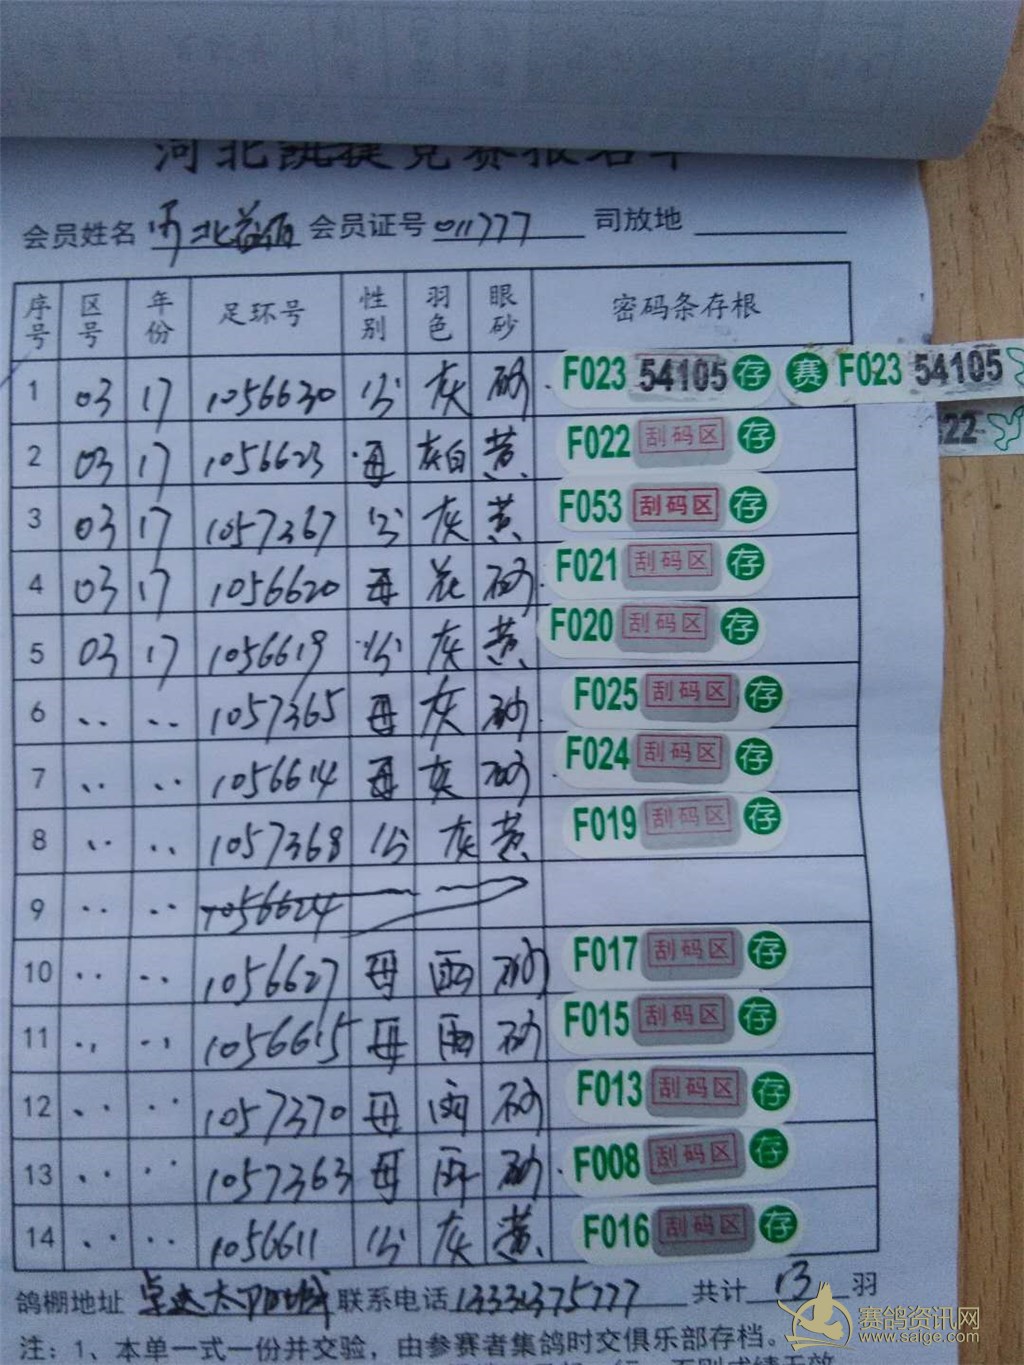 河北凯捷竞赛报名单
会员姓名 河北益佰 会员证号 011777 司放地
序号 区号 年份 足环号 性别 羽色 眼砂 密码条存根
1 03 17 1056630 公 灰 砂 F023 54105 存 赛 F023 54105
2 03 17 1056623 母 灰白 黄 F022 刮码区 存 22
3 03 17 1057367 公 灰 黄 F053 刮码区 存
4 03 17 1056620 母 花 砂 F021 刮码区 存
5 03 17 1056619 公 灰 黄 F020 刮码区 存
6 ·· ·· 1057365 母 灰 砂 F025 刮码区 存
7 ·· ·· 1056614 母 灰 砂 F024 刮码区 存
8 ·· ·· 1057368 公 灰 黄 F019 刮码区 存
9 ·· ·· 1056624
10 ·· ·· 1056627 母 雨 砂 F017 刮码区 存
11 ·· ·· 1056615 母 雨 砂 F015 刮码区 存
12 ·· ·· 1057370 母 雨 砂 F013 刮码区 存
13 ·· ·· 1057363 母 雨 砂 F008 刮码区 存
14 ·· ·· 1056611 公 灰 黄 F016 刮码区 存
鸽棚地址 卓达太阳城 联系电话 13331375777 共计 13 羽
注：1、本单一式一份并交验，由参赛者集鸽时交俱乐部存档。
赛鸽资讯网
www.saige.com